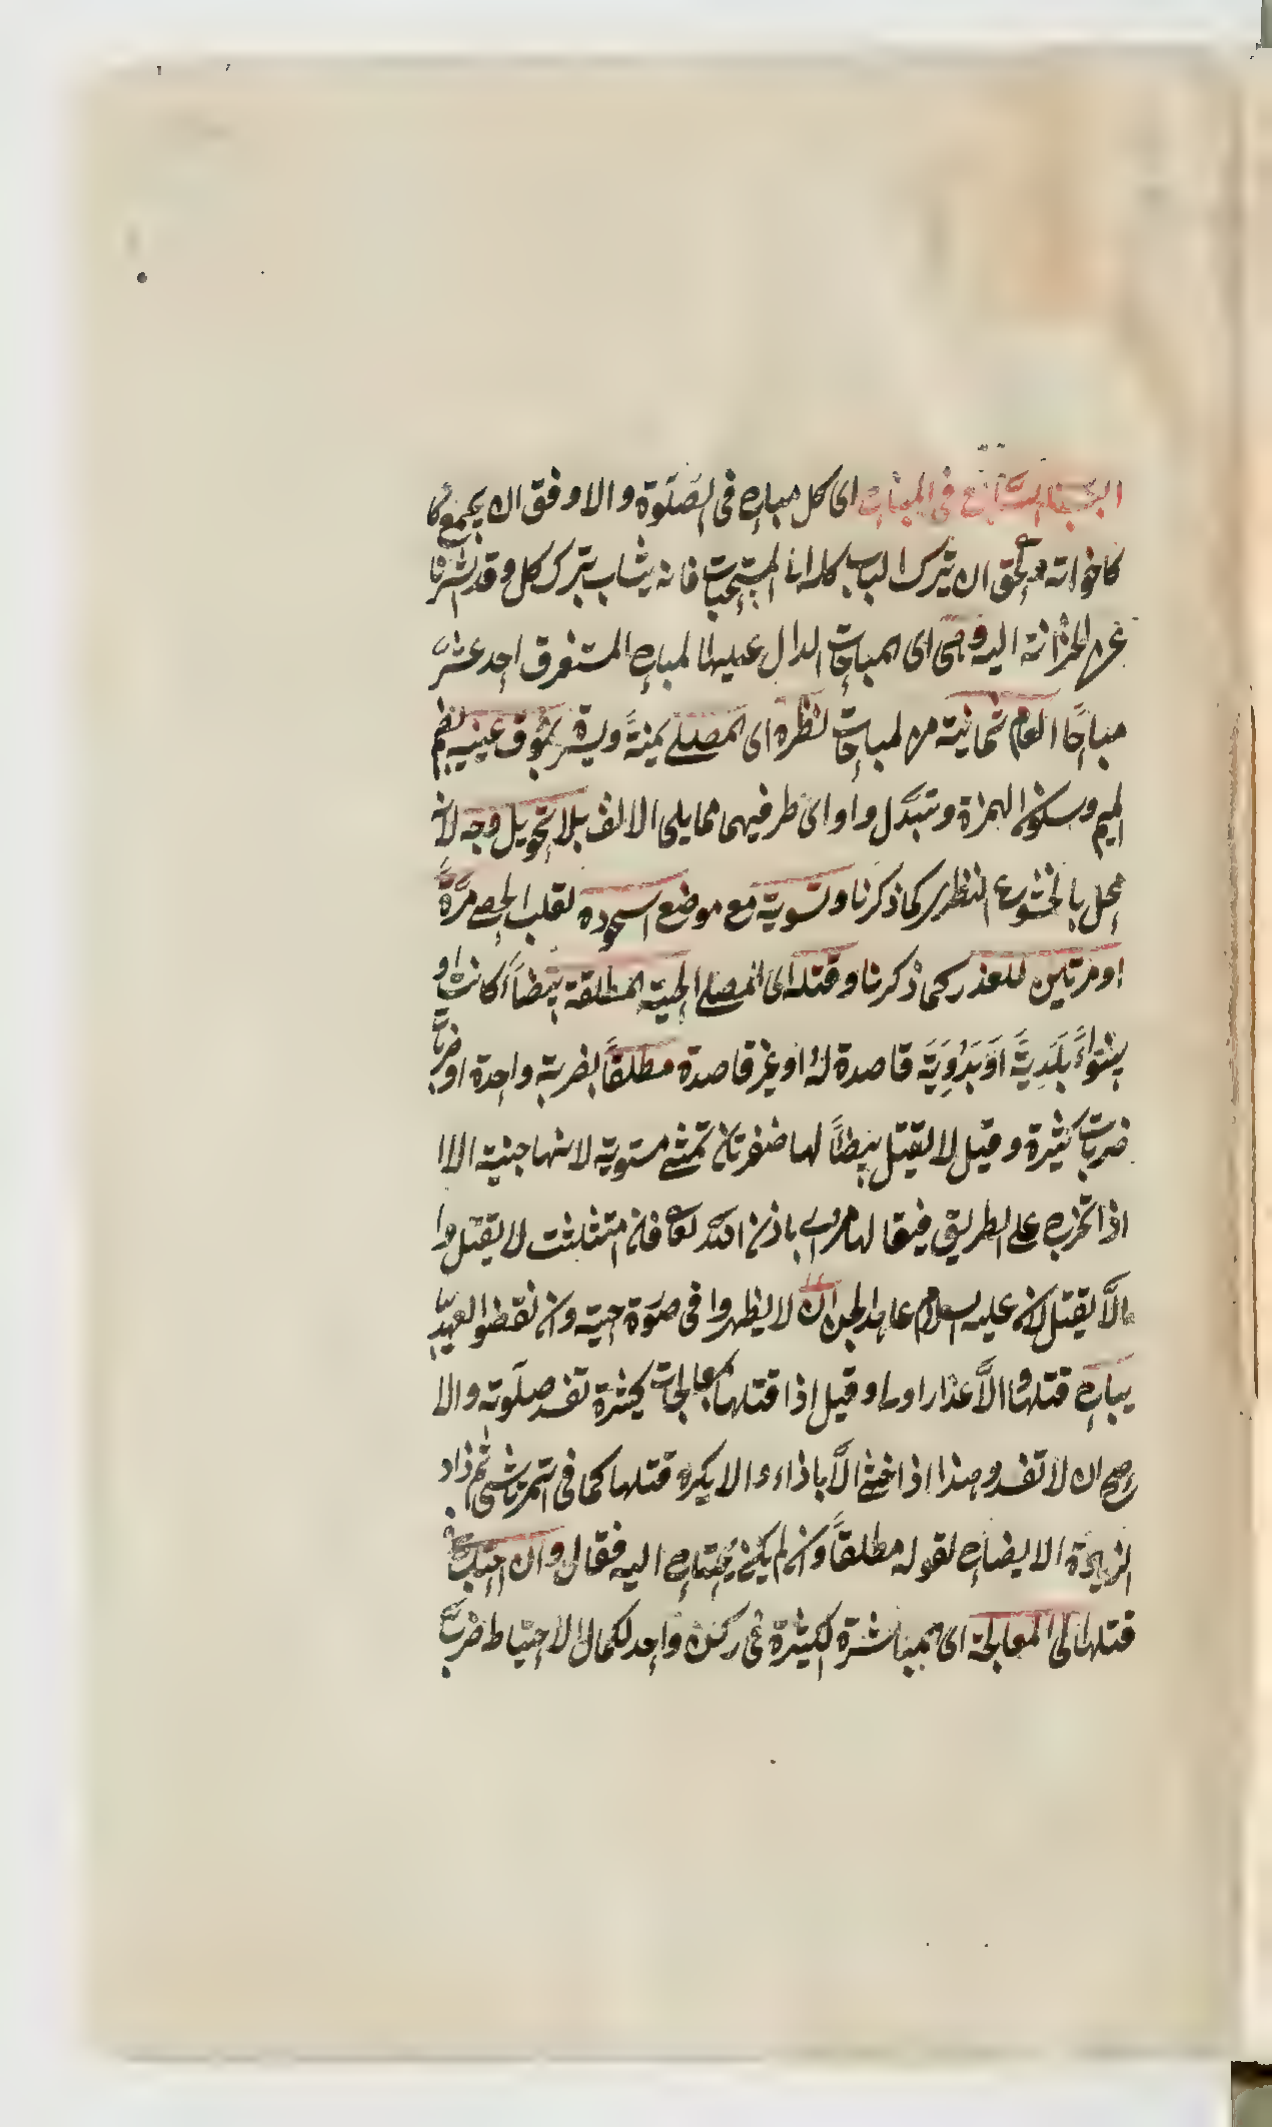 الباب السابع فى المباح اى كل مباح فى الصلوة والاوفق ان يجمع كا
كاخواته والحق ان يترك الباب كله انا المستحبات فانه يثاب بترك كل وقد اشرنا
اليه وهى اى المباحات الدال عليها المباح المستغرق احد عشر
مباحًا العام ثمانية من المباحات نظره اى المصلے يمنةً ويسرةً بموق عينيه بضم
الميم وسكون الهمزة وتبدل واوا اى طرفيهما مما يلى الالف بلا تحويل وجه لانه
مخل بالخشوع النظر كما ذكرنا وتسوية مع موضع السجوده لقلب الحصے مرّةً
او مرتين للعذر كما ذكرنا وقتله اى المصلے الحية المطلقة بيضاءً كانت او
سوداءً بلديةً او بدويةً قاصدة لهُ او غير قاصدة مطلقاً بضربة واحدة او ضربات
ضربات كثيرة وقيل لا يقتل بيضاً لها ضفرتان تمشے مستوية لانها جنية الا
اذا على الطريق فيقال لها مروے باذن الله تعا فان امتثلت لا يقتل وا
والاَّ يقتل لانه عليه السلام عاهد الجن ان لا يظهروا فى صورة حية وان نقضوا العهد
يباح قتلها والاَّ عذار اولے وقيل اذا قتلها بمعالجات كثيرة تفسد صلوته والا
والاصح ان لا تفسد وهذا اذا خشے الاَّباذاء والا يكره قتلها كما فى التمرتاشى ثم زاد
لزيادة الايضاح لقوله مطلقاً وان لم يكن يحتاج اليه فقال وان احتاج
قتلها الى المعالجة اى مباشرة الكثيرة فى ركن واحد لكمال الاحتياط ضربات